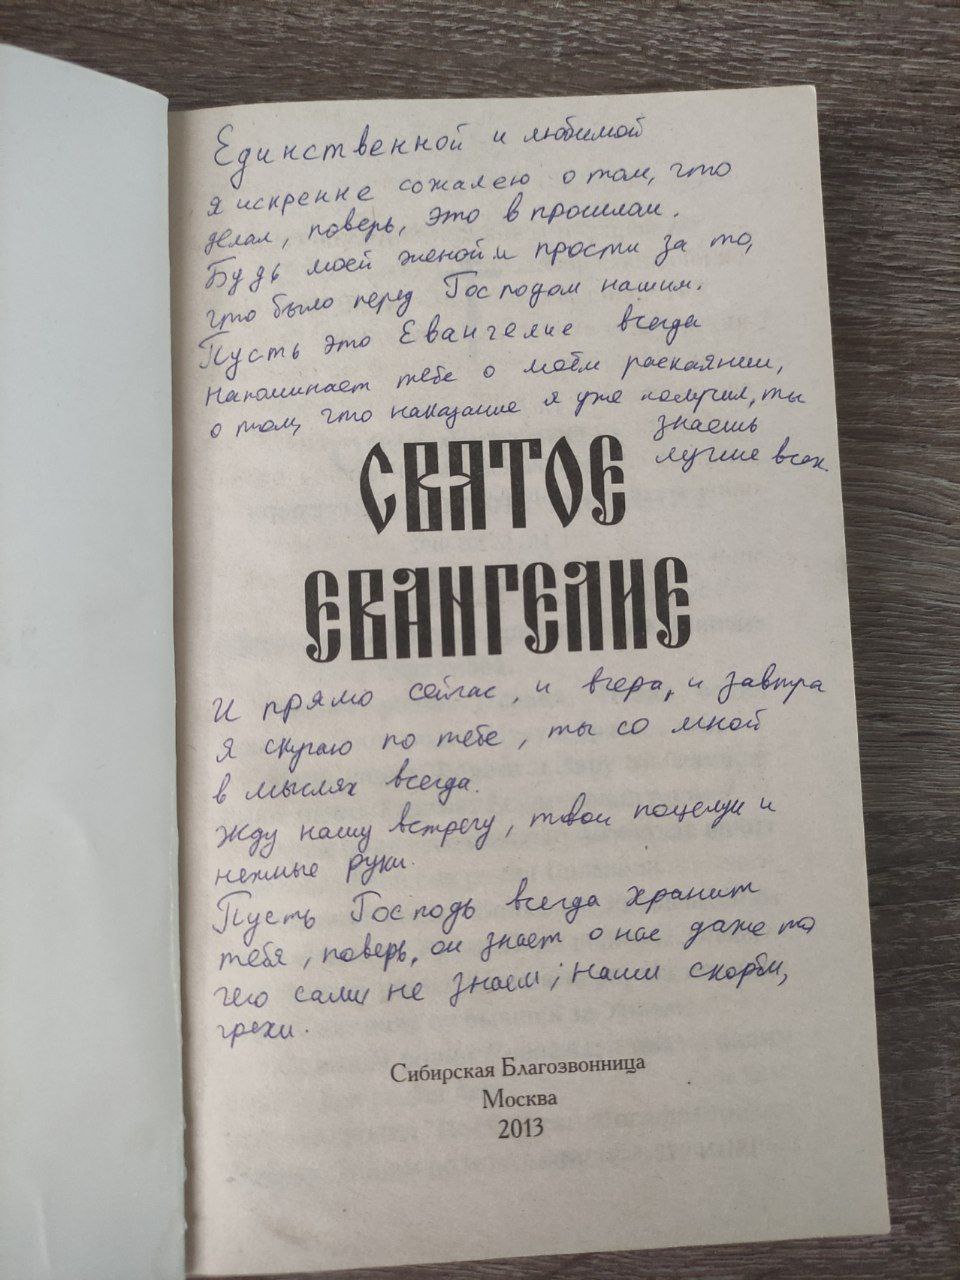 Единственной и любимой
я искренне сожалею о том, что
делал, поверь, это в прошлом.
Будь моей женой и прости за то,
что было перед Господом нашим.
Пусть это Евангелие всегда
напоминает тебе о моём раскаянии,
о том, что наказание я уже получил, ты
знаешь
лучше всех.
СВЯТОЕ
ЕВАНГЕЛИЕ
И прямо сейчас, и вчера, и завтра
я скучаю по тебе, ты со мной
в мыслях всегда.
Жду нашу встречу, твои поцелуи и
нежные руки.
Пусть Господь всегда хранит
тебя, поверь, он знает о нас даже то
чего сами не знаем, наши скорби,
грехи.
Сибирская Благозвонница
Москва
2013